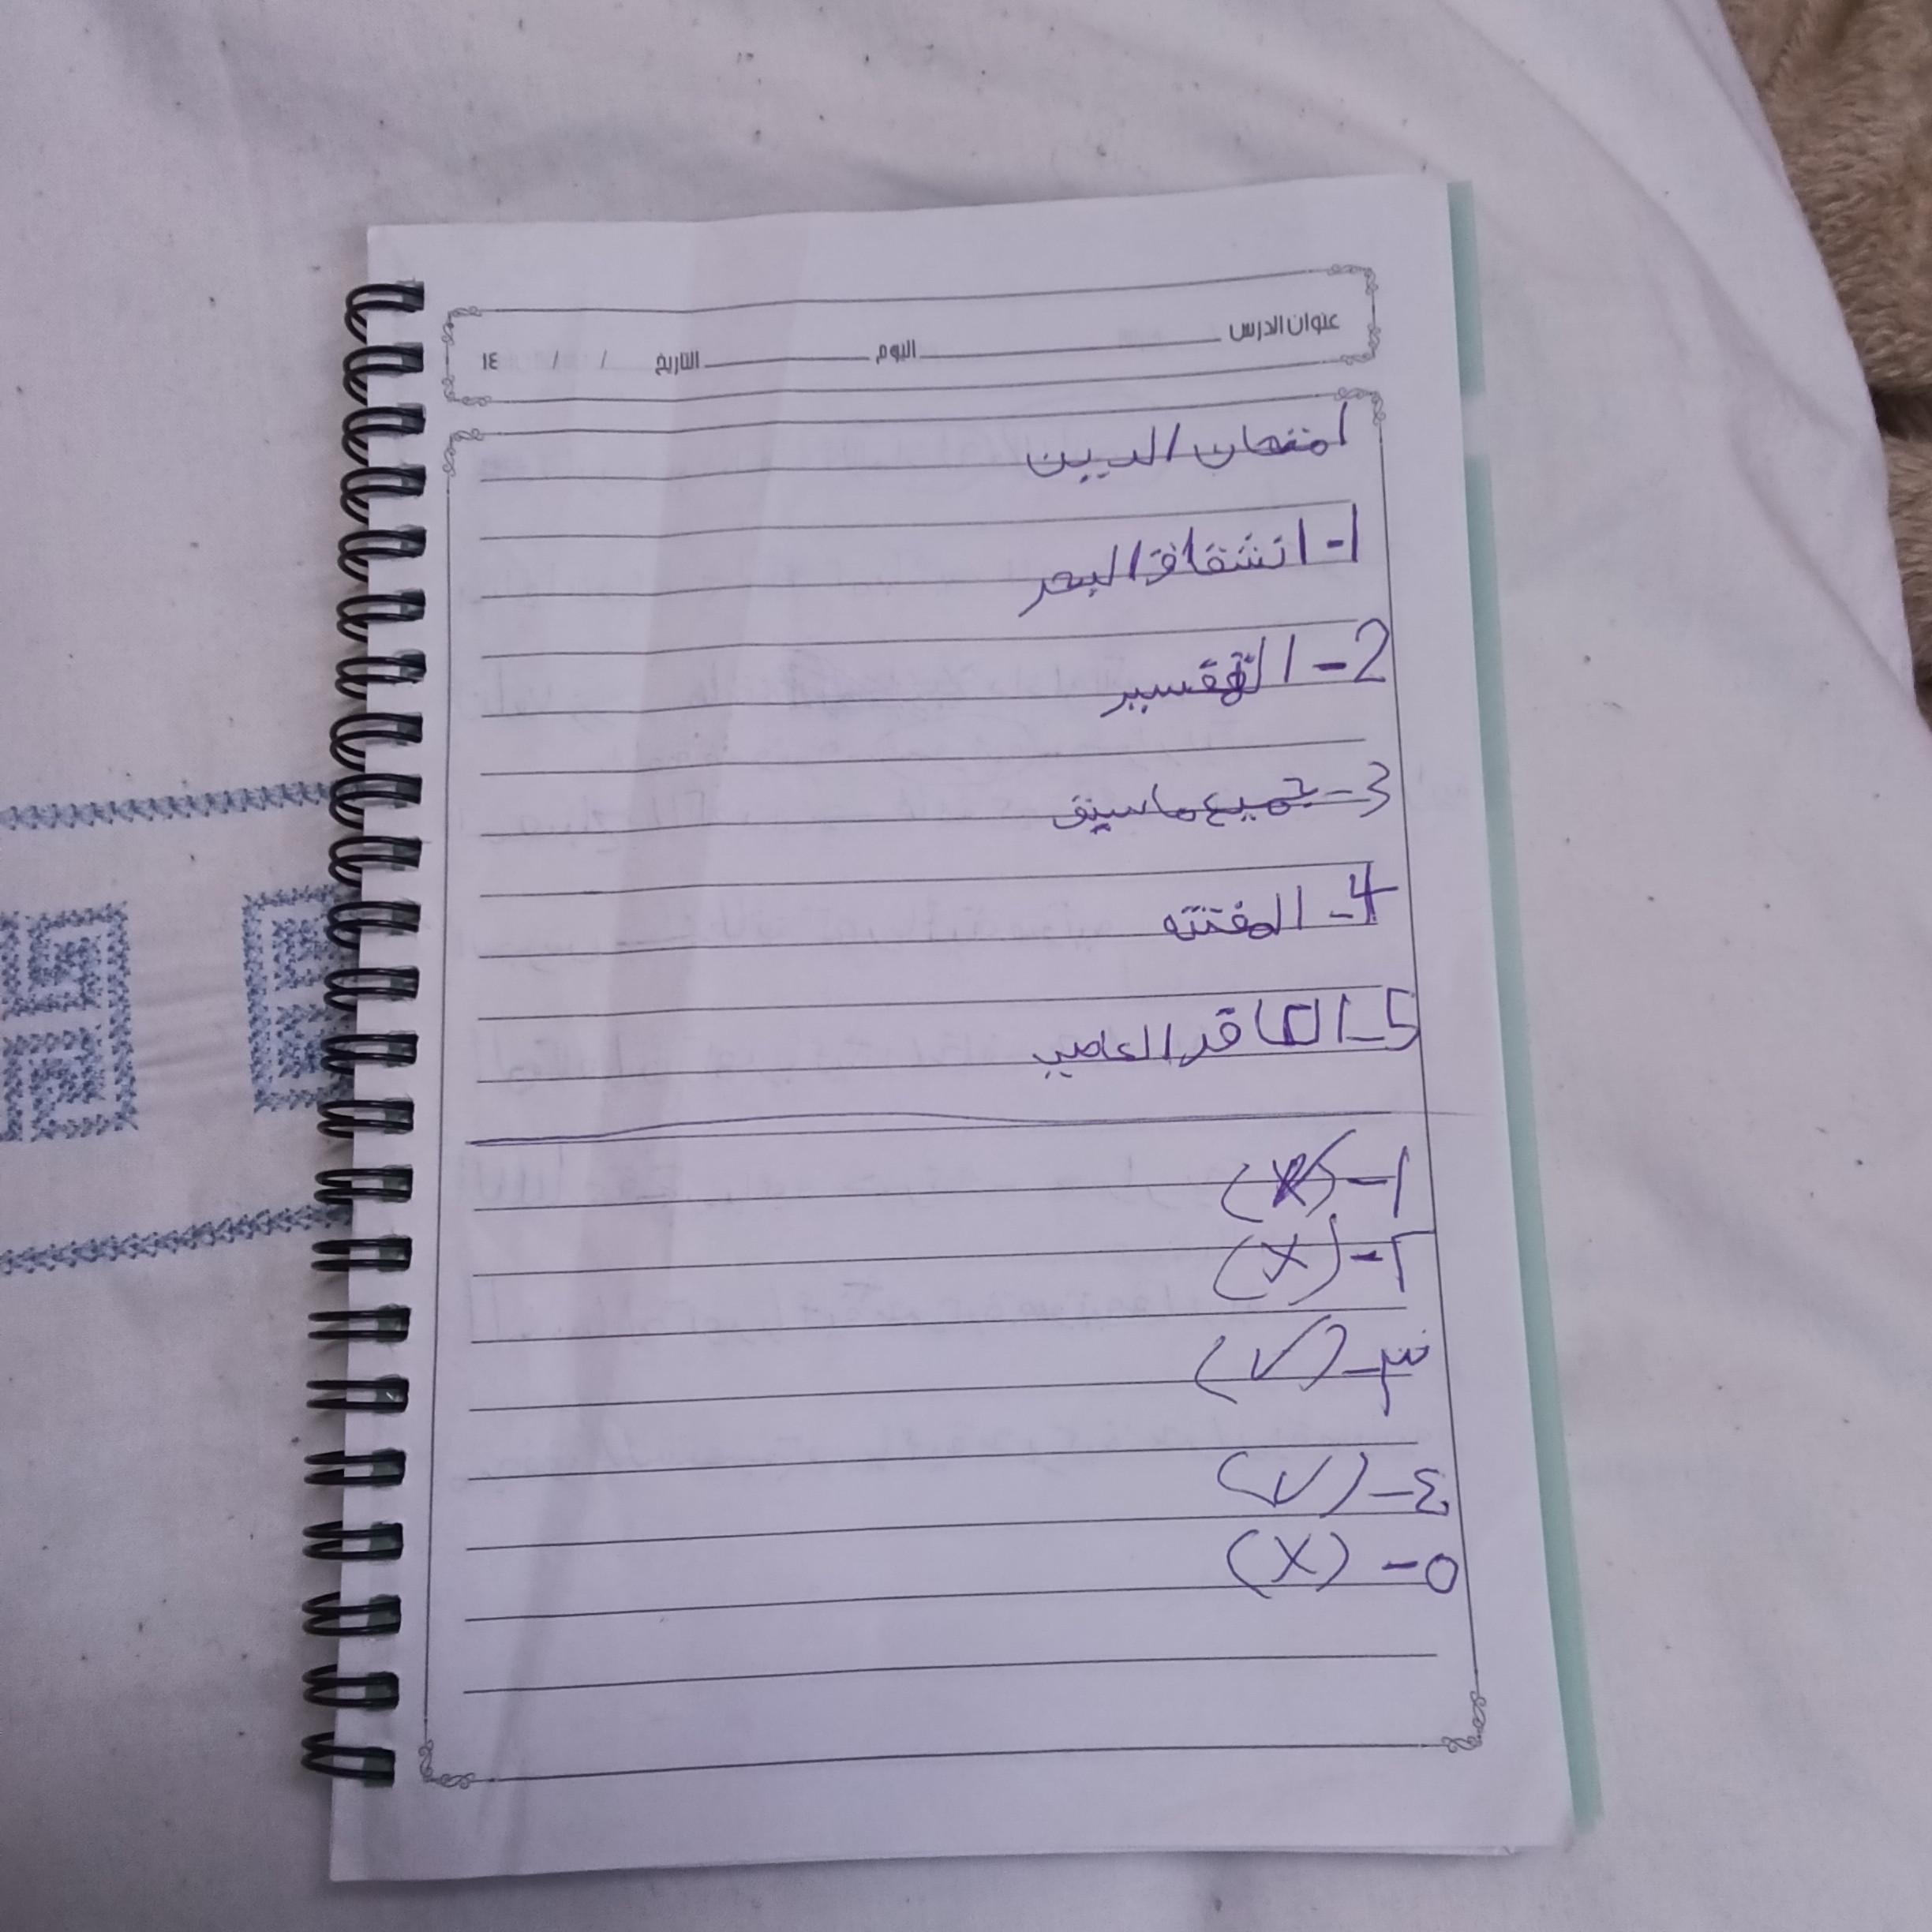 عنوان الدرس اليوم التاريخ / / ١٤
امتحان الدين
1- انشقاق البحر
2- التفسير
3- جميع ما سبق
4- الفتنته
5- الكافر العاصي
١- (X)
٢- (X)
٣- (✓)
٤- (✓)
٥- (X)